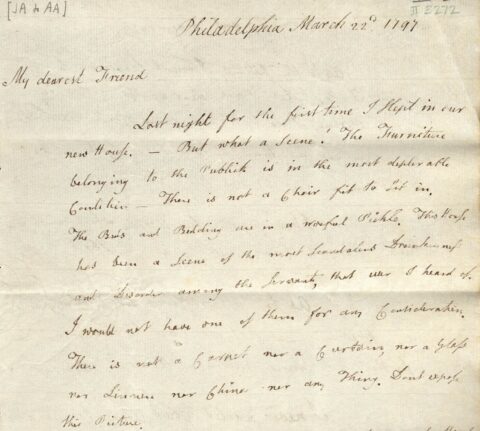 [JA to AA]
# 3272
Philadelphia March 22d 1797
My dearest Friend
Last night for the first time I slept in our
new House. — But what a Scene! The Furniture
belonging to the Publick is in the most deplorable
Condition — There is not a Chair fit to sit in.
The Beds and Bedding are in a woeful Pickle. This House
has been a Scene of the most scandalous Drunkenness
and Disorder among the Servants, that ever I heard of.
I would not have one of them for any Consideration.
There is not a Carpet nor a Curtain, nor a Glass
nor Linnen nor China nor any Thing. Dont expose
this Picture.